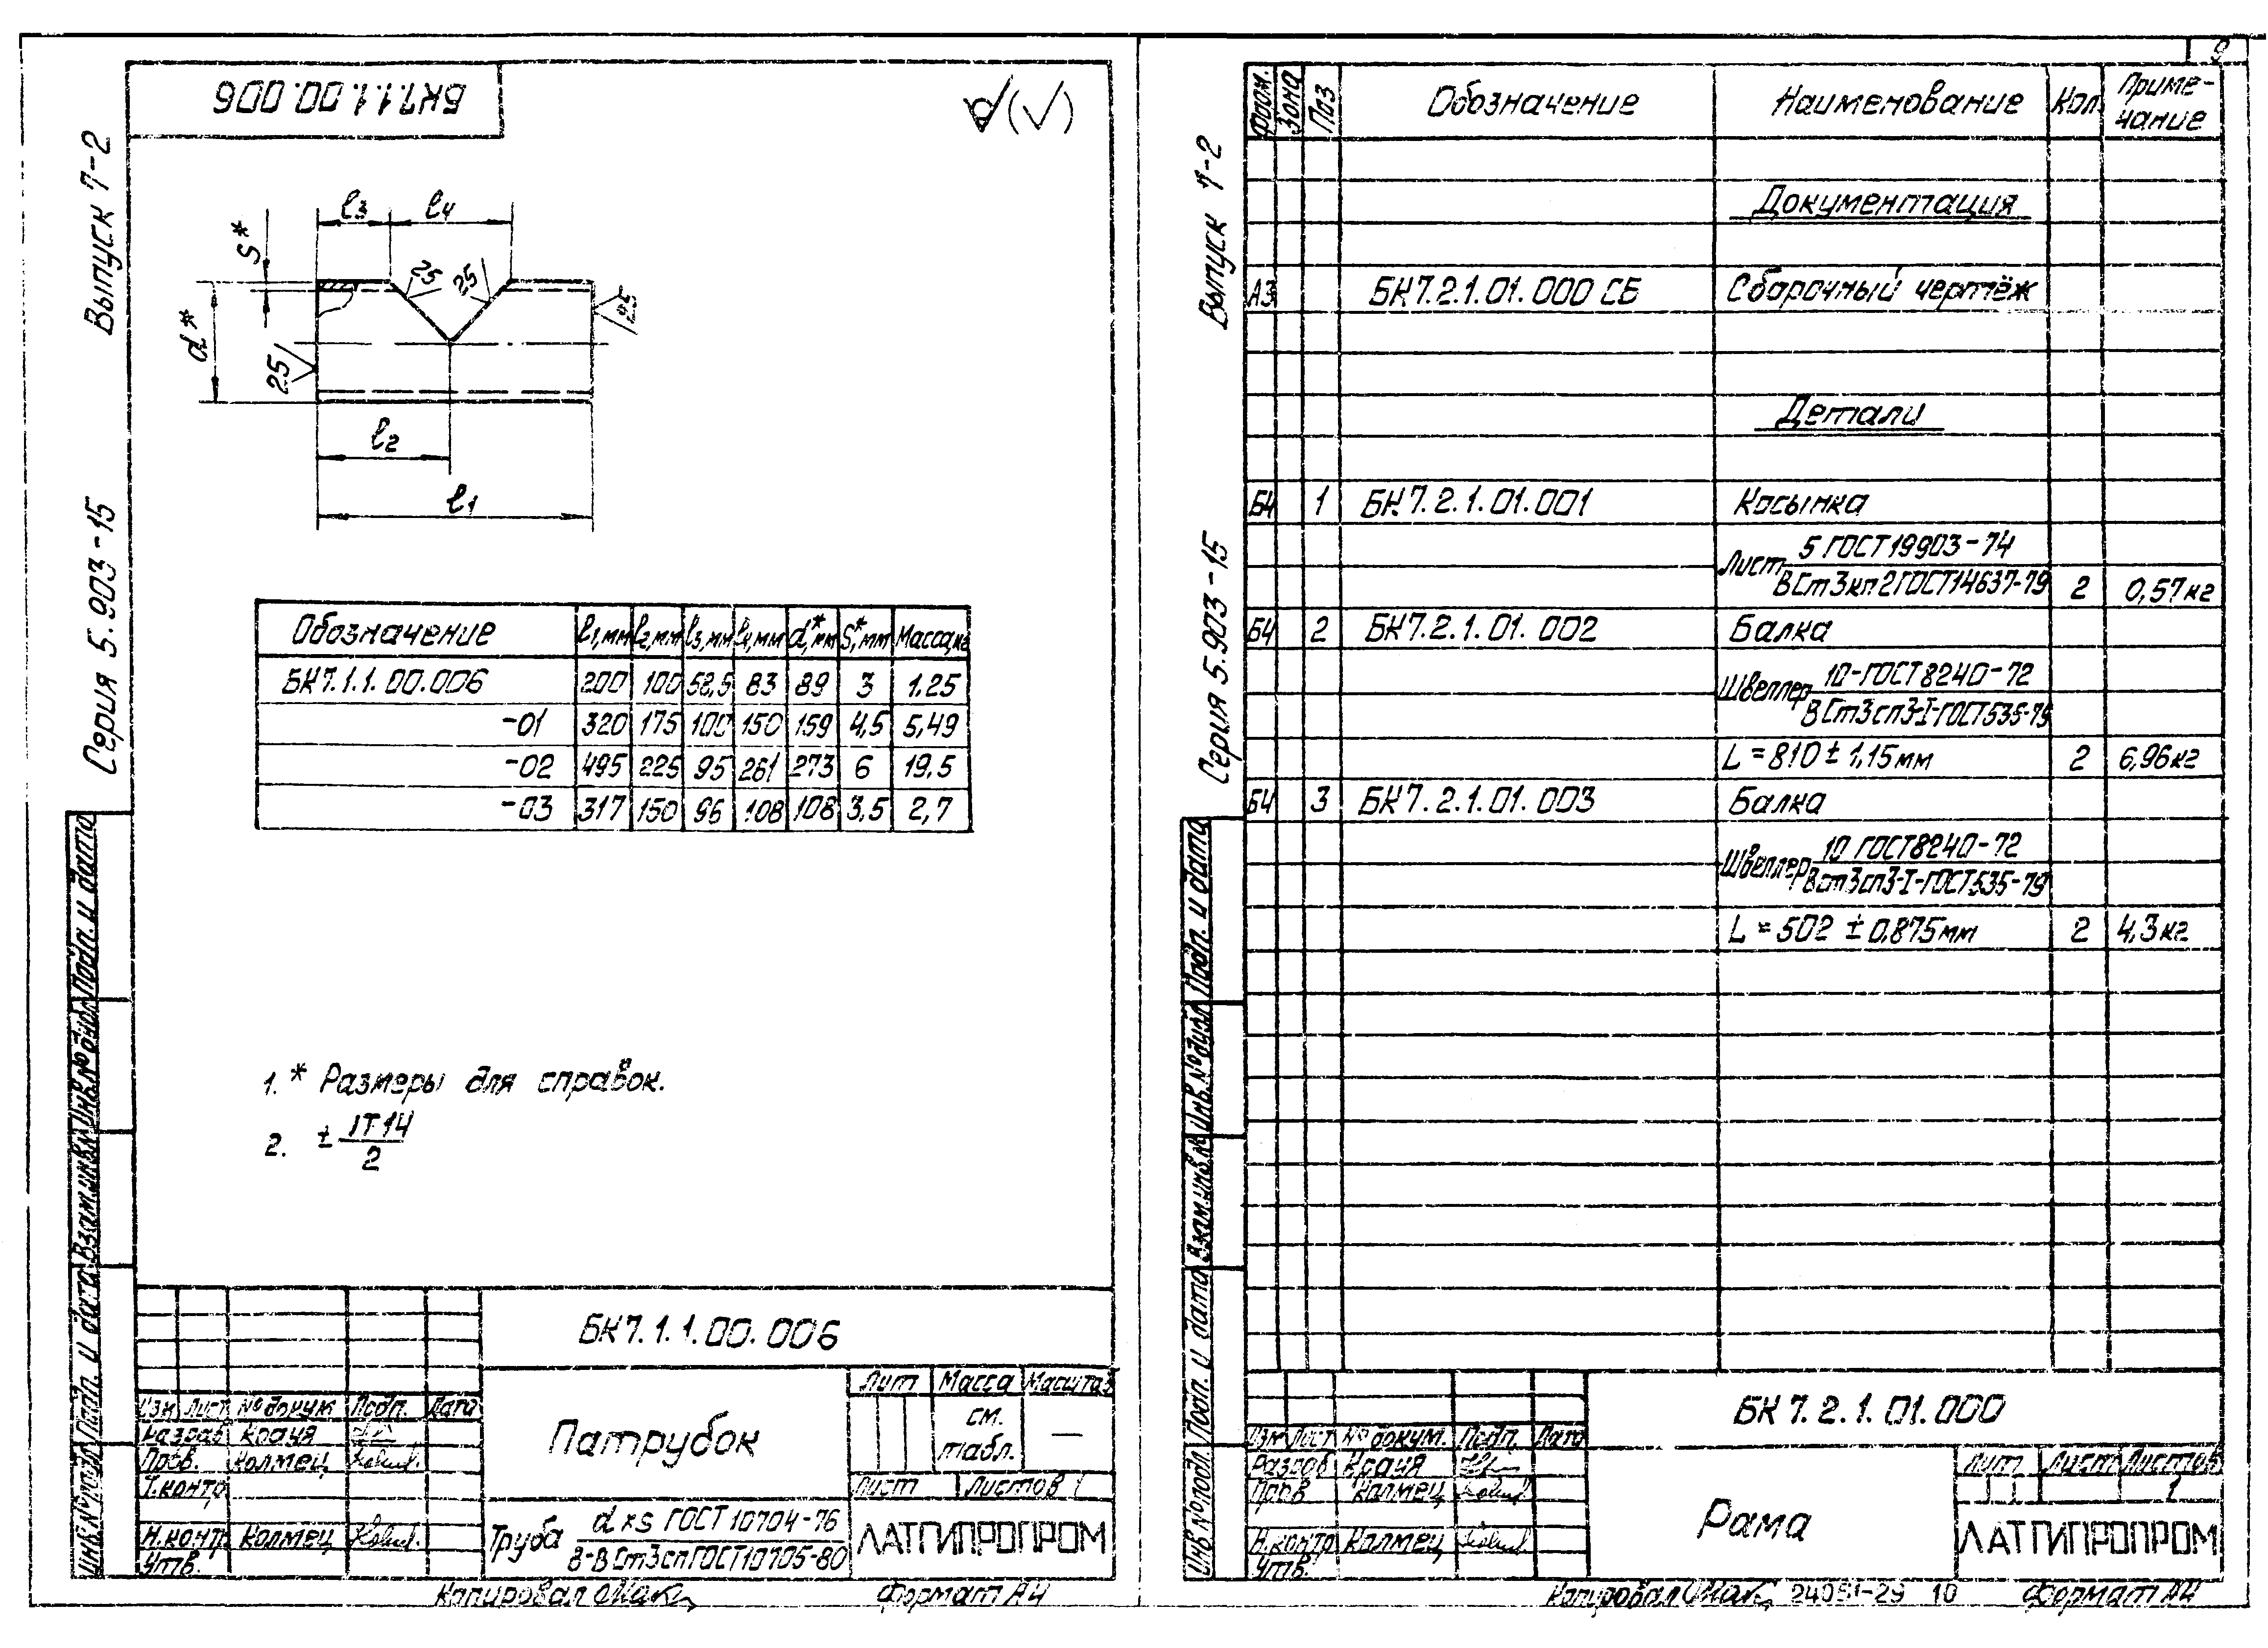 БК7.1.1.00.006
Выпуск 7-2
Серия 5.903-15
(√)
l3 l4
S*
d*
25 25
25
25
l2
l1
Обозначение l1,мм l2,мм l3,мм l4,мм d*,мм S*,мм Масса,кг
БК7.1.1.00.006 200 100 58,5 83 89 3 1,25
-01 320 175 100 150 159 4,5 5,49
-02 495 225 95 261 273 6 19,5
-03 317 150 96 108 108 3,5 2,7
1. * Размеры для справок.
2. ± IT14
2
Подп. и дата
Инв.№дубл
Взам.инв.№
Подп. и дата
Инв.№подл
БК7.1.1.00.006
Изм Лист №докум Подп. Дата
Разраб Крауя
Пров. Колмец
Т.контр
Н.контр Колмец
Утв.
Патрубок
Лит Масса Масштаб
см. табл. —
Лист Листов 1
Труба d×s ГОСТ 10704-76
В-ВСт3сп ГОСТ 10705-80
ЛАТГИПРОПРОМ
Копировал Формат А4
9
Выпуск 7-2
Серия 5.903-15
Форм. Зона Поз Обозначение Наименование Кол. Приме-
чание
Документация
А3 БК7.2.1.01.000 СБ Сборочный чертёж
Детали
Б4 1 БК7.2.1.01.001 Косынка
Лист 5 ГОСТ 19903-74
ВСт3кп2 ГОСТ 14637-79 2 0,57кг
Б4 2 БК7.2.1.01.002 Балка
Швеллер 10-ГОСТ 8240-72
ВСт3сп3-I-ГОСТ 535-79
L=810±1,15мм 2 6,96кг
Б4 3 БК7.2.1.01.003 Балка
Швеллер 10 ГОСТ 8240-72
Вст3сп3-I-ГОСТ 535-79
L=502 ±0,875мм 2 4,3кг
Подп. и дата
Инв.№дубл
Взам.инв.№
Подп. и дата
Инв.№подл.
БК7.2.1.01.000
Изм Лист №докум. Подп. Дата
Разраб Крауя
Пров Колмец
Н.контр Колмец
Утв.
Рама
Лит Лист Листов
1
ЛАТГИПРОПРОМ
Копировал 24051-29 10 Формат А4